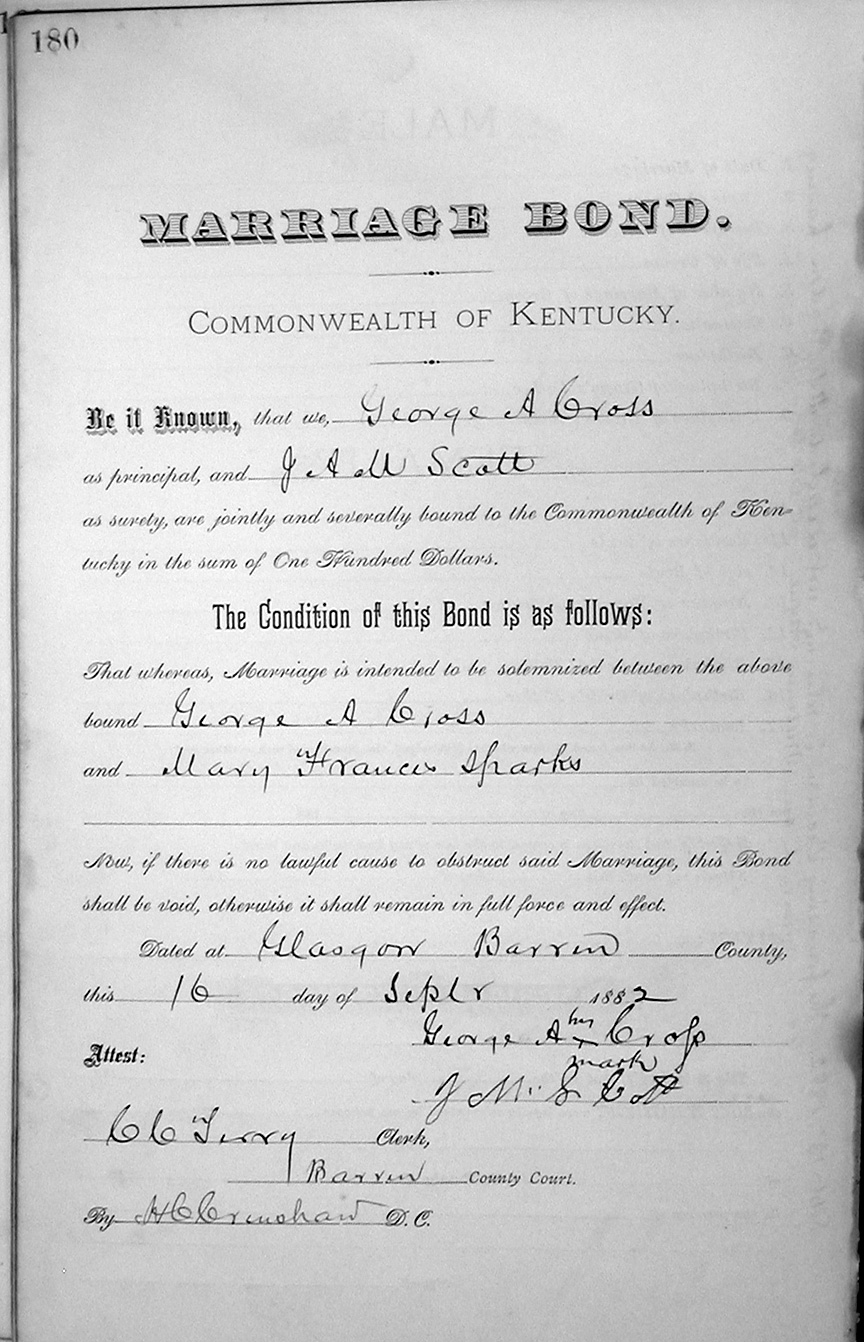 180
MARRIAGE BOND.
COMMONWEALTH OF KENTUCKY.
Be it Known, that we, George A Cross
as principal, and J A M Scott
as surety, are jointly and severally bound to the Commonwealth of Ken-
tucky in the sum of One Hundred Dollars.
The Condition of this Bond is as follows:
That whereas, Marriage is intended to be solemnized between the above
bound George A Cross
and Mary Francis Sparks
Now, if there is no lawful cause to obstruct said Marriage, this Bond
shall be void, otherwise it shall remain in full force and effect.
Dated at Glasgow Barren County,
this 16 day of Septr 1882
George A his x Cross
mark
Attest:
J M Scott
C C Terry Clerk,
Barren County Court.
By H C Crenshaw D. C.